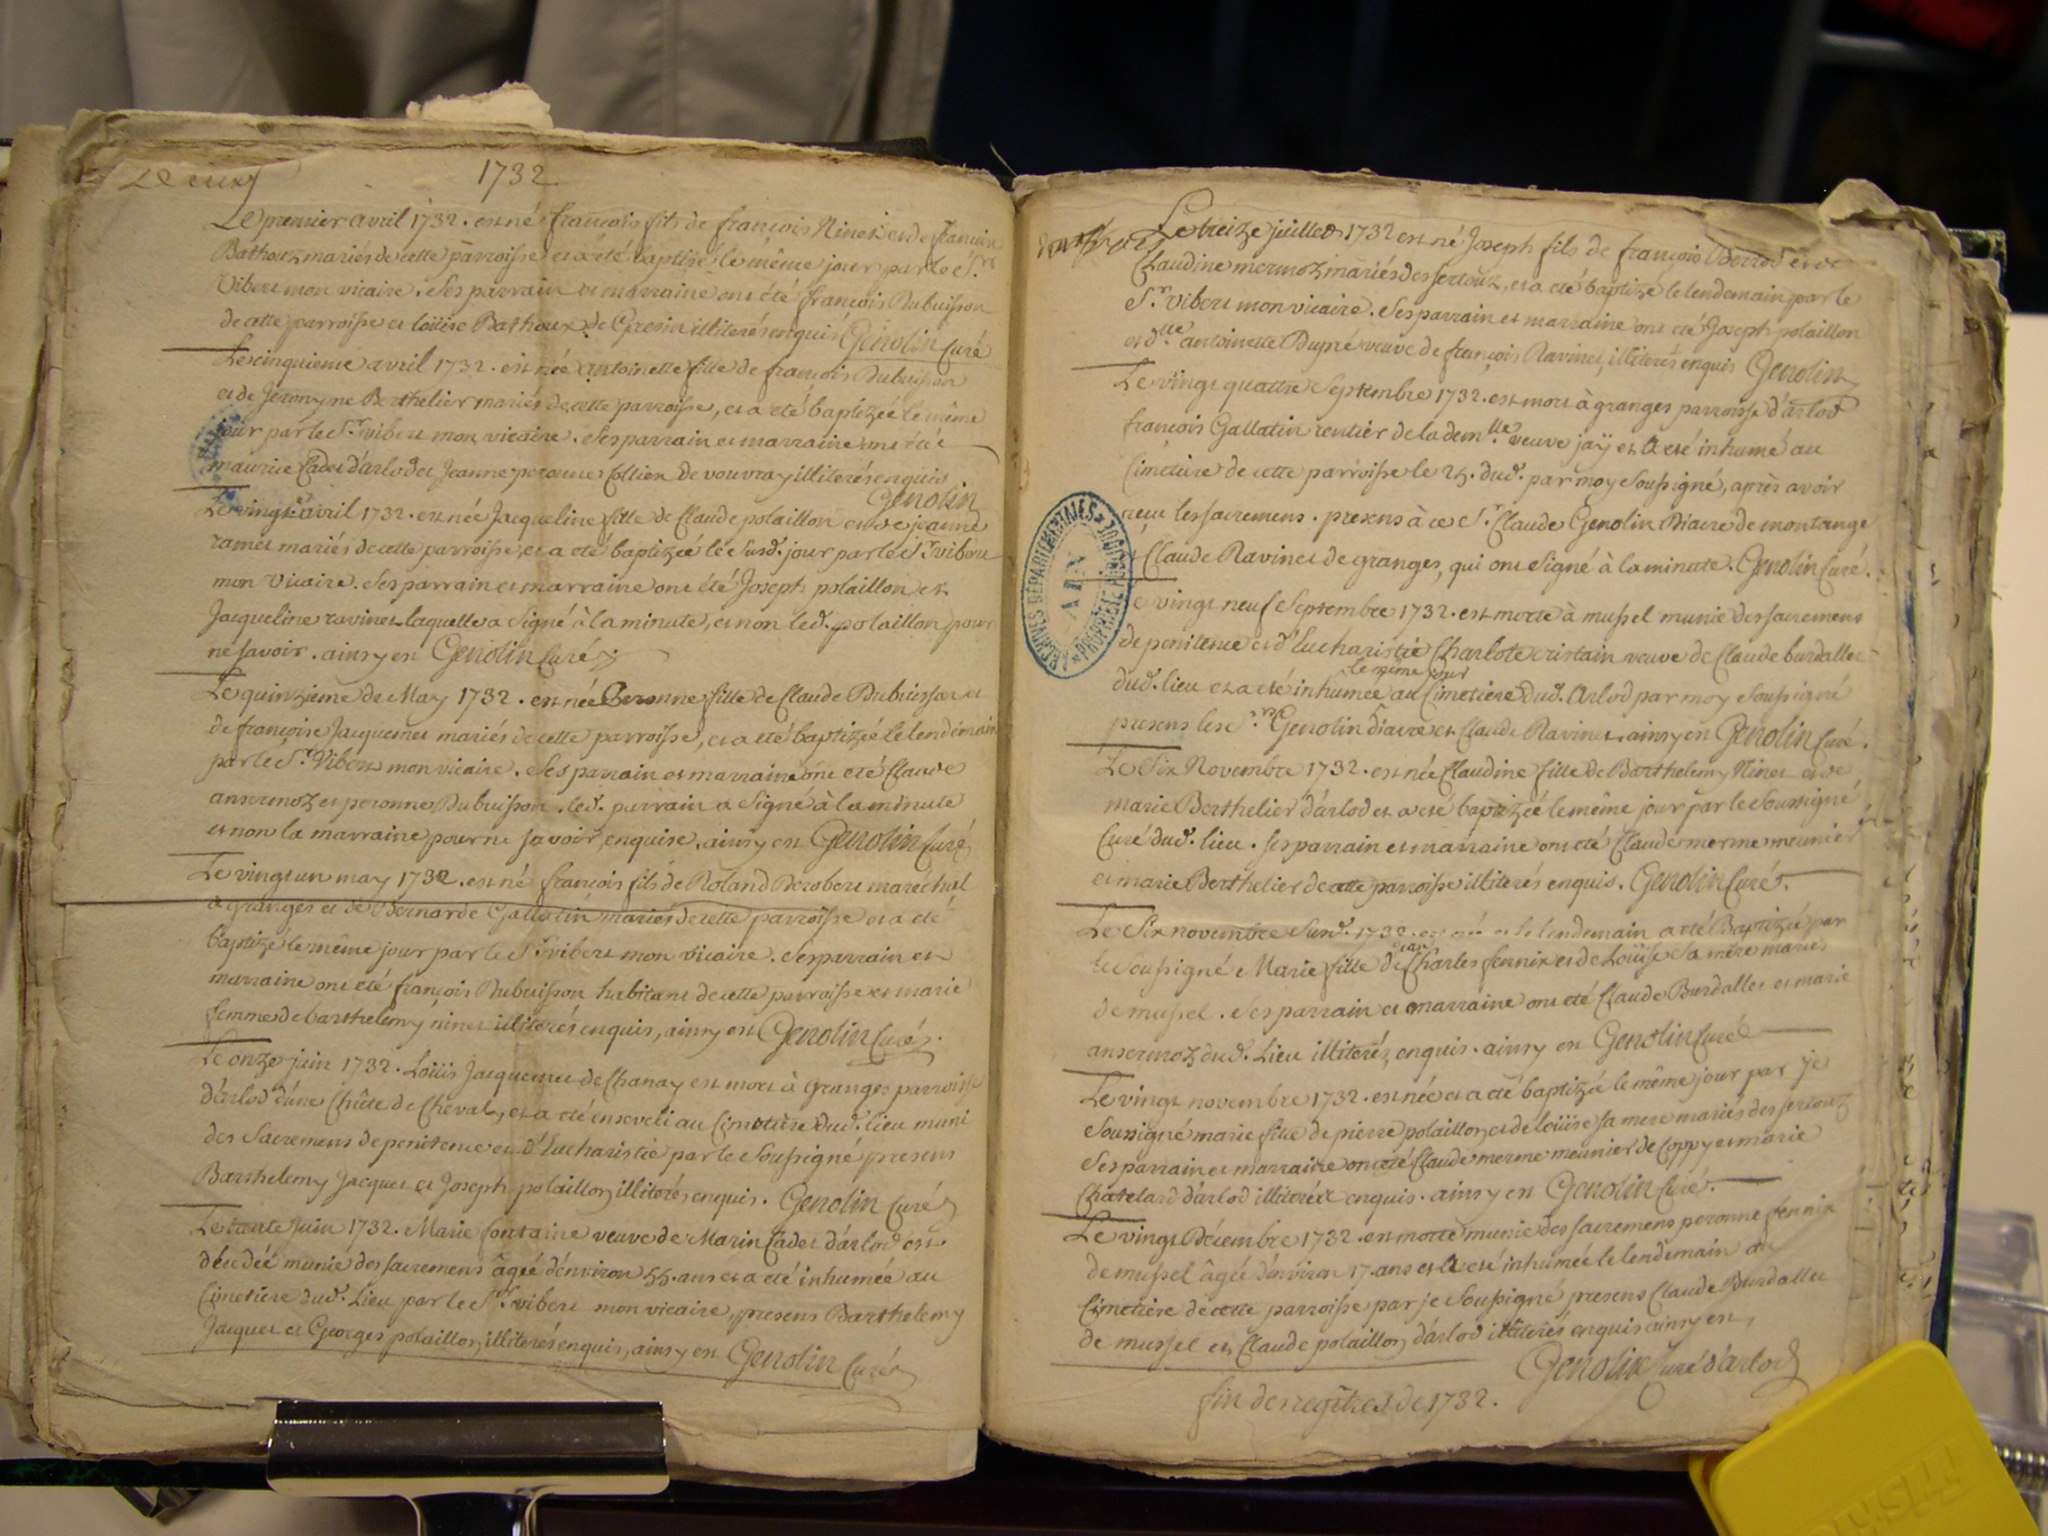 1732
Le premier avril 1732. est né françois fils de françois Ninet et de françoise
Bathoux mariés de cette parroisse et a été baptisé le même jour par le Sr
Vibert mon vicaire. Ses parrain et marraine ont été françois Dubuisson
de cette parroisse et loüise Bathoux de Gresin illiterés enquis Genolin Curé
Le cinquieme avril 1732. est née antoinette fille de françois Dubuisson
et de Jeronyme Berthelier mariés de cette parroisse, et a été baptizée le même
jour par le Sr vibert mon vicaire. Ses parrain et marraine ont été
maurice Cadet d'arlod et Jeanne peronne Collier de vouvray illiterés enquis
Genolin
Le vingt avril 1732. est née Jacqueline fille de Claude polaillon et de jeanne
ramet mariés de cette parroisse, et a été baptizée le Susd. jour par le Sr vibert
mon vicaire. Ses parrain et marraine ont été Joseph polaillon et
Jacqueline ravinet laquelle a signé à la minute, et non led. polaillon pour
ne savoir. ainsy est Genolin Curé
Le quinzieme de May 1732. est née Peronne fille de Claude Dubuisson et
de françoise Jacquemet mariés de cette parroisse, et a été baptizée le lendemain
par le Sr Vibert mon vicaire. Ses parrain et marraine ont été Claude
ansermoz et peronne Dubuisson. led. parrain a signé à la minute
et non la marraine pour ne savoir, enquise. ainsy est Genolin Curé
Le vingt un may 1732. est né françois fils de Roland Berobert maréchal
a granges et de Bernarde Gallatin mariés de cette parroisse et a été
baptizé le même jour par le Sr vibert mon vicaire. Ses parrain et
marraine ont été françois Dubuisson habitant de cette parroisse et marie
femme de barthelemy ninet illiterés enquis, ainsy est Genolin Curé.
Le onze juin 1732. Loüis Jacquemet de Chanay est mort à Granges parroisse
d'arlod d'une Chûte de Cheval, et a été enseveli au Cimetière dud. lieu muni
des Sacremens de penitence et d'Eucharistie par le Soussigné presens
Barthelemy Jacquet et Joseph polaillon illiterés enquis. Genolin Curé
Le trente Juin 1732. Marie fontaine veuve de Marin Cadet d'arlod est
décédée munie des sacremens âgée d'environ 55. ans et a été inhumée au
Cimetiere dud. Lieu par le Sr vibert mon vicaire, presens Barthelemy
Jacquet et Georges polaillon, illiterés enquis, ainsy est Genolin Curé
Le treize juillet 1732 est né Joseph fils de françois Berrod et de
Claudine mermoz mariés des sertoux, et a été baptizé le lendemain par le
Sr vibert mon vicaire. Ses parrain et marraine ont été Joseph polaillon
et dlle antoinette Dupré veuve de françois Ravinet, illiterés enquis Genolin
Le vingt quattre Septembre 1732. est mort à granges parroisse d'arlod
françois Gallatin rentier de la demlle veuve jaÿ et a été inhumé au
Cimetiere de cette parroisse le 25. dud. par moy Soussigné, après avoir
reçu les sacremens. presens à ce Sr Claude Genolin Diacre de montange
et Claude Ravinet de granges, qui ont signé à la minute. Genolin Curé.
Le vingt neuf Septembre 1732. est morte à mussel munie des sacremens
de penitence et d'Eucharistie Charlote cristain veuve de Claude burdallet
le même jour
dud. lieu et a été inhumée au Cimetiere dud. Arlod par moy soussigné
presens les srs Genolin diacre et Claude Ravinet. ainsy est Genolin Curé.
Le Six Novembre 1732. est née Claudine fille de Barthelemy Ninet et de
marie Berthelier d'arlod et a été baptizée le même jour par le Soussigné
Curé dud. lieu. ses parrain et marraine ont été Claude merme meunier
et marie Berthelier de cette parroisse illiterés enquis. Genolin Curé.
Le Six novembre Susd. 1732. est née et le lendemain a été Baptizée par
le Soussigné Marie fille de Charles fennix et de Loüise Sa mere mariés
de mussel. Ses parrain et marraine ont été Claude Burdallet et marie
ansermoz dud. Lieu illiterés, enquis. ainsy est Genolin Curé
Le vingt novembre 1732. est née et a été baptizée le même jour par je
Soussigné marie fille de pierre polaillon et de loüise sa mere mariés des sertoux
Ses parrain et marraine ont été Claude merme meunier de Coppy et marie
Chatelard d'arlod illiterés enquis. ainsy est Genolin Curé.
Le vingt Décembre 1732. est morte munie des sacremens peronne fennix
de mussel âgée d'environ 17. ans et a été inhumée le lendemain au
Cimetiere de cette parroisse par je Soussigné presens Claude Burdallet
de mussel et Claude polaillon d'arlod illiterés enquis ainsy est,
Genolin Curé d'arlod
fin de regîtres de 1732.
ARCHIVES DÉPARTEMENTALES
AIN
PROPRIÉTÉ PUBLIQUE